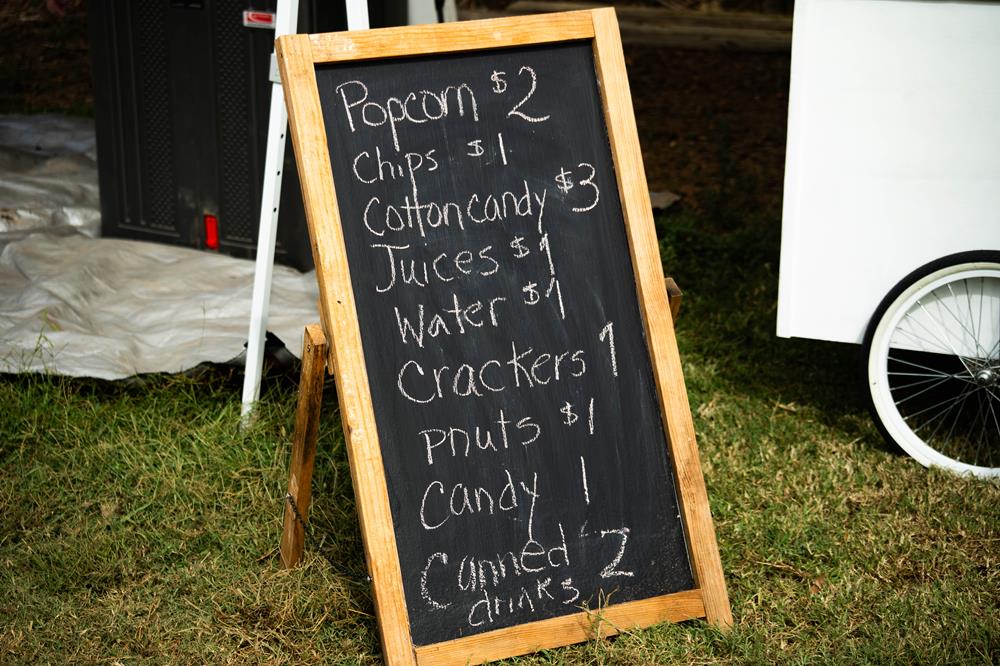 Popcorn $2
Chips $1
Cotton candy $3
Juices $1
Water $1
Crackers 1
pnuts $1
Candy 1
Canned 2
drinks